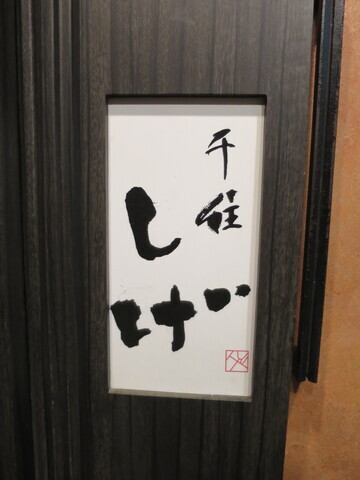 千住
しげ